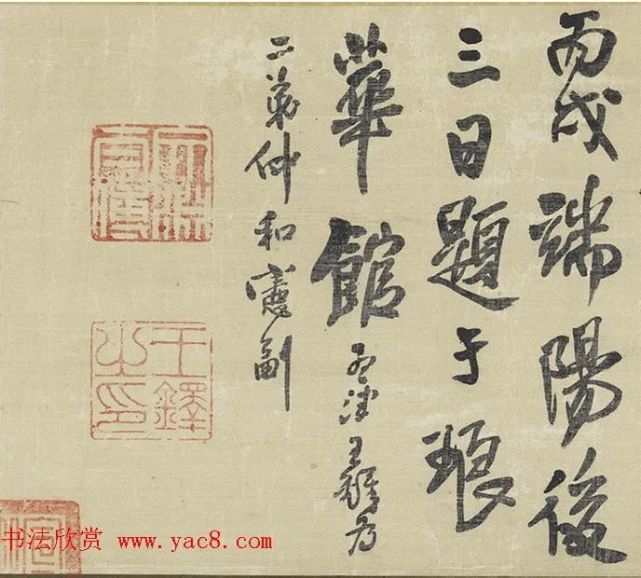 丙戌端陽後
三日題于琅
華館 孟津王鐸為
二弟仲和憲副
王鐸之印
书法欣赏 www.yac8.com